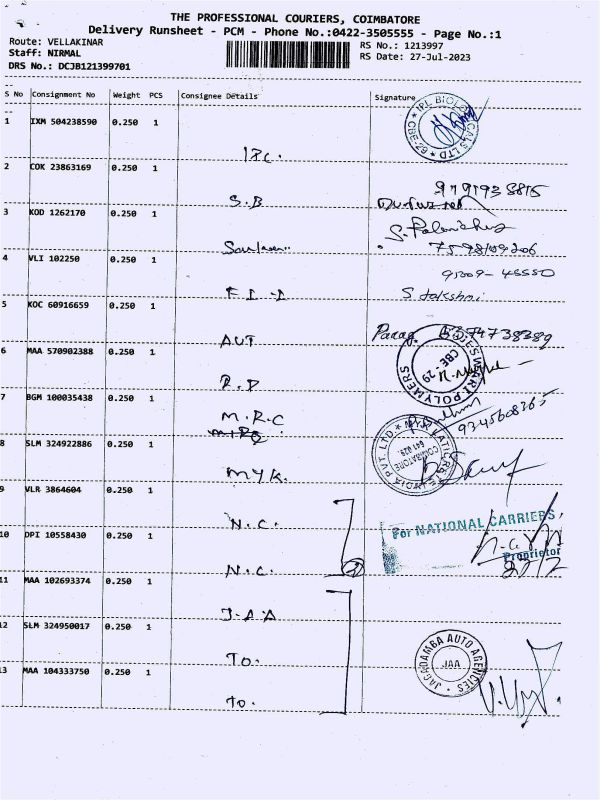 THE PROFESSIONAL COURIERS, COIMBATORE
Delivery Runsheet - PCM - Phone No.:0422-3505555 - Page No.:1
Route: VELLAKINAR
RS No.: 1213997
Staff: NIRMAL
RS Date: 27-Jul-2023
DRS No.: DCJB121399701
S No Consignment No Weight PCS Consignee Details Signature
1 IXM 504238590 0.250 1
IPL BIOLOGICALS LTD
2 COK 23863169 0.250 1
S.B
3 KOD 1262170 0.250 1
4 VLI 102250 0.250 1
5 KOC 60916659 0.250 1
AUT
6 MAA 570902388 0.250 1
CBE - 29
POLYMERS
7 BGM 100035438 0.250 1
M.R.C
9345608365
8 SLM 324922886 0.250 1
INDIA PVT. LTD.
COIMBATORE
MYK.
9 VLR 3864604 0.250 1
N.C.
For NATIONAL CARRIERS
10 DPI 10558430 0.250 1
Proprietor
N.C.
11 MAA 102693374 0.250 1
J.A.A
12 SLM 324950017 0.250 1
JAGADAMBA AUTO AGENCIES
JAA
TO.
13 MAA 104333750 0.250 1
TO.